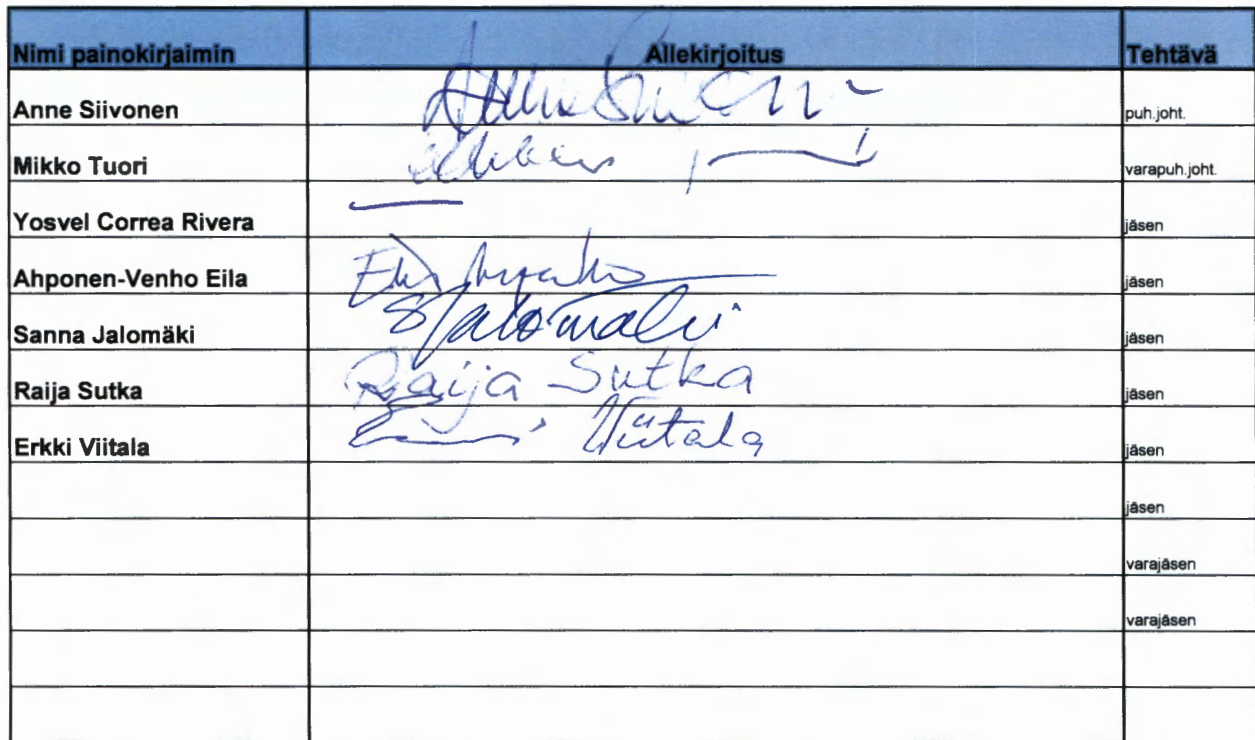 Nimi painokirjaimin Allekirjoitus Tehtävä
Anne Siivonen puh.joht.
Mikko Tuori varapuh.joht.
Yosvel Correa Rivera jäsen
Ahponen-Venho Eila jäsen
Sanna Jalomäki SJalomäki jäsen
Raija Sutka Raija Sutka jäsen
Erkki Viitala Viitala jäsen
jäsen
varajäsen
varajäsen